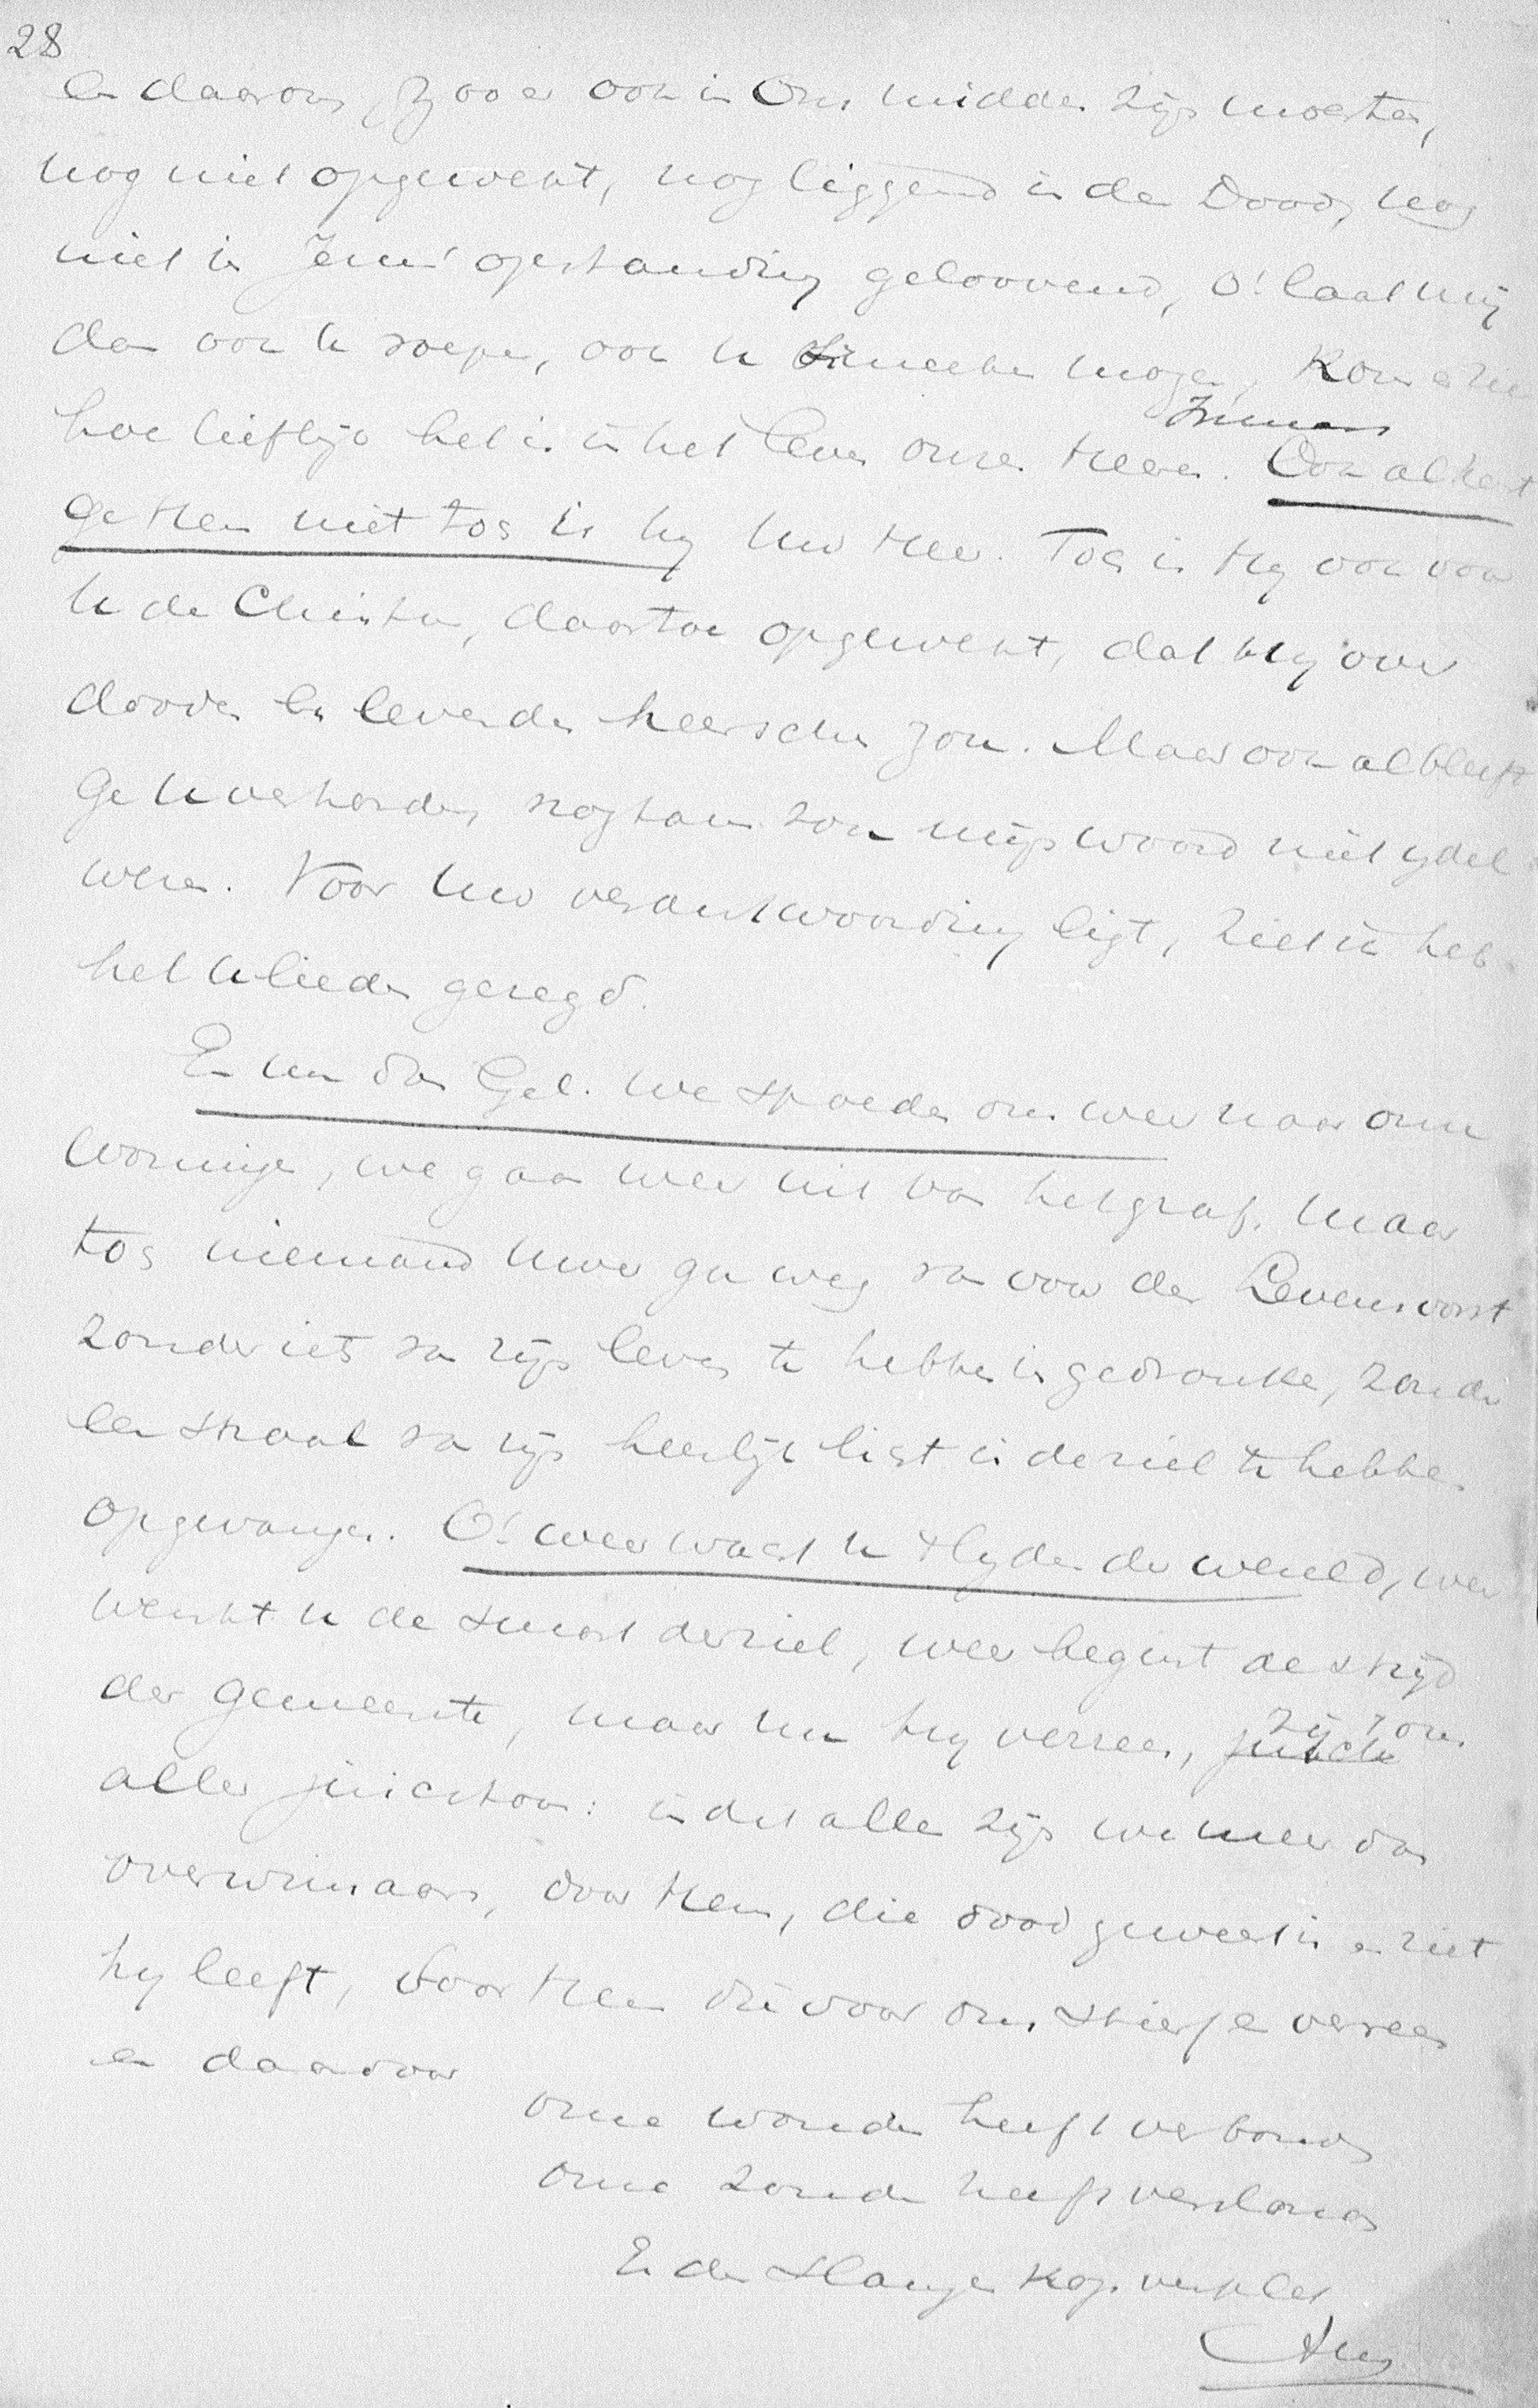 28
En daarom, zoo er ook in Ons midden zijn mochten,
nog niet opgewekt, nog liggend in den Dood, nog
niet in Jezus' opstanding geloovend, o! laat mij
dan ook u roepen, ook u smeeken mogen, Kom en zie
hoe lieflijk het is in het leven onzes Heeren. Ook al kent
ge Hem niet tog is hij Uw Heer. Tog is Hij ook voor
U de Christus, daartoe opgewekt, dat hij over
dooden en levenden heerschen zou. Maar ook al bleeft
Ge U verharden, nogtans zou mijn woord niet ydel
wezen. Voor Uw verantwoording ligt, ziet ik heb
het Ulieden gezegd.
En nu dan Gel. we spoeden ons weer naar onze
woningen, we gaan weer uit van het graf. Maar
tog niemand Uwer ga weg van voor den Levensvorst
zonder iets van zijn leven te hebben ingedronken, zonder
een straal van zijn heerlijk ligt in de ziel te hebben
opgevangen. O! weer wagt u Hyden de wereld, weer
wenkt u de smart der ziel, weer begint de strijd
der Gemeente, maar nu hij verrees,
zij 't ons
aller juichtoon: in dit alles zijn we meer dan
overwinnaars, door Hem, die dood geweest is en ziet
hij leeft, door Hem die voor ons stierf en verrees
en daardoor
onze wonden heeft verbonden
onze zonden heeft verslonden
En den Slangen kop verplet
Amen